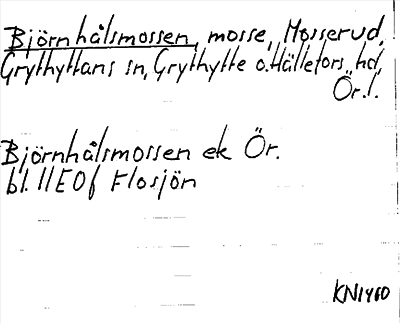 Björnhålsmossen, mosse, Mosserud,
Grythyttans sn, Grythytte o. Hällefors hd,
Ör. l.
Björnhålsmossen ek Ör.
bl. 11E0f Flosjön
KN1960